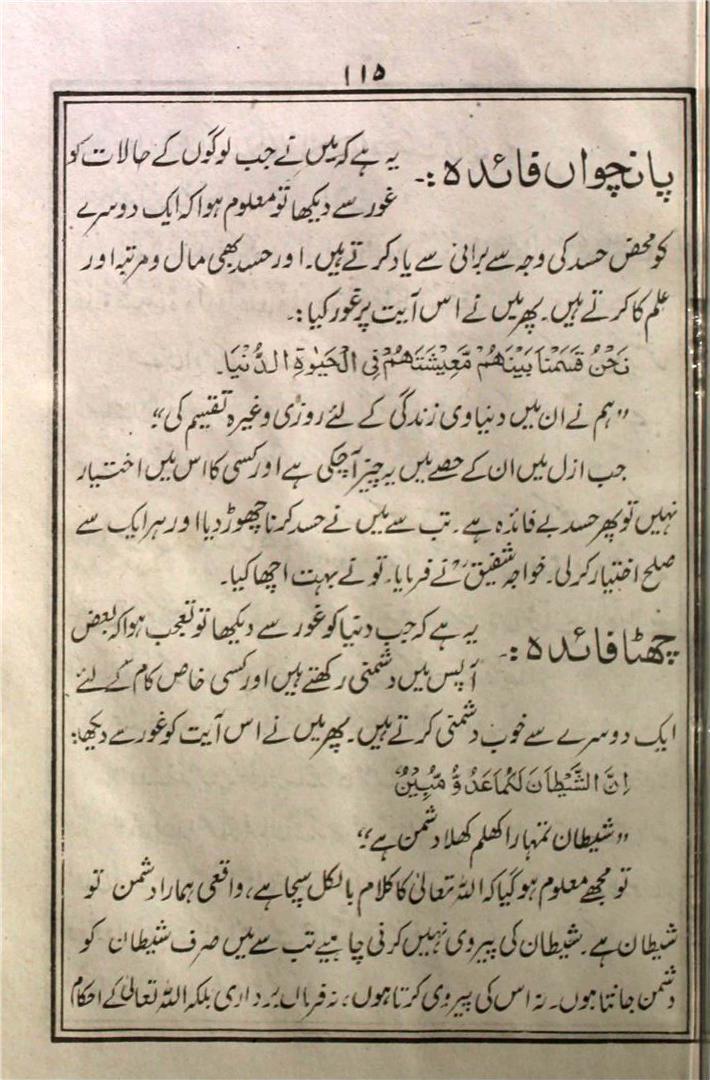 ۱۱۵
پانچواں فائدہ :۔ یہ ہے کہ میں نے جب لوگوں کے حالات کو
غور سے دیکھا تو معلوم ہوا کہ ایک دوسرے
کو محض حسد کی وجہ سے برائی سے یاد کرتے ہیں۔ اور حسد بھی مال و مرتبہ اور
علم کا کرتے ہیں۔ پھر میں نے اس آیت پر غور کیا :۔
نَحْنُ قَسَمْنَا بَيْنَهُمْ مَّعِيْشَتَهُمْ فِى الْحَيٰوةِ الدُّنْيَا۔
”ہم نے ان میں دنیاوی زندگی کے لئے روزی وغیرہ تقسیم کی“
جب ازل میں ان کے حصے میں یہ چیز آچکی ہے اور کسی کا اس میں اختیار
نہیں تو پھر حسد بے فائدہ ہے۔ تب سے میں نے حسد کرنا چھوڑ دیا اور ہر ایک سے
صلح اختیار کر لی۔ خواجہ شفیقؒ نے فرمایا۔ تو نے بہت اچھا کیا۔
چھٹا فائدہ :۔ یہ ہے کہ جب دنیا کو غور سے دیکھا تو تعجب ہوا کہ بعض
آپس میں دشمنی رکھتے ہیں اور کسی خاص کام کے لئے
ایک دوسرے سے خوب دشمنی کرتے ہیں۔ پھر میں نے اس آیت کو غور سے دیکھا:
اِنَّ الشَّيْطَانَ لَكُمَا عَدُوٌّ مُّبِيْنٌ
”شیطان تمہارا کھلم کھلا دشمن ہے“
تو مجھے معلوم ہو گیا کہ اللہ تعالیٰ کا کلام بالکل سچا ہے، واقعی ہمارا دشمن تو
شیطان ہے۔ شیطان کی پیروی نہیں کرنی چاہیے تب سے میں صرف شیطان کو
دشمن جانتا ہوں۔ نہ اس کی پیروی کرتا ہوں، نہ فرماں برداری بلکہ اللہ تعالیٰ کے احکام